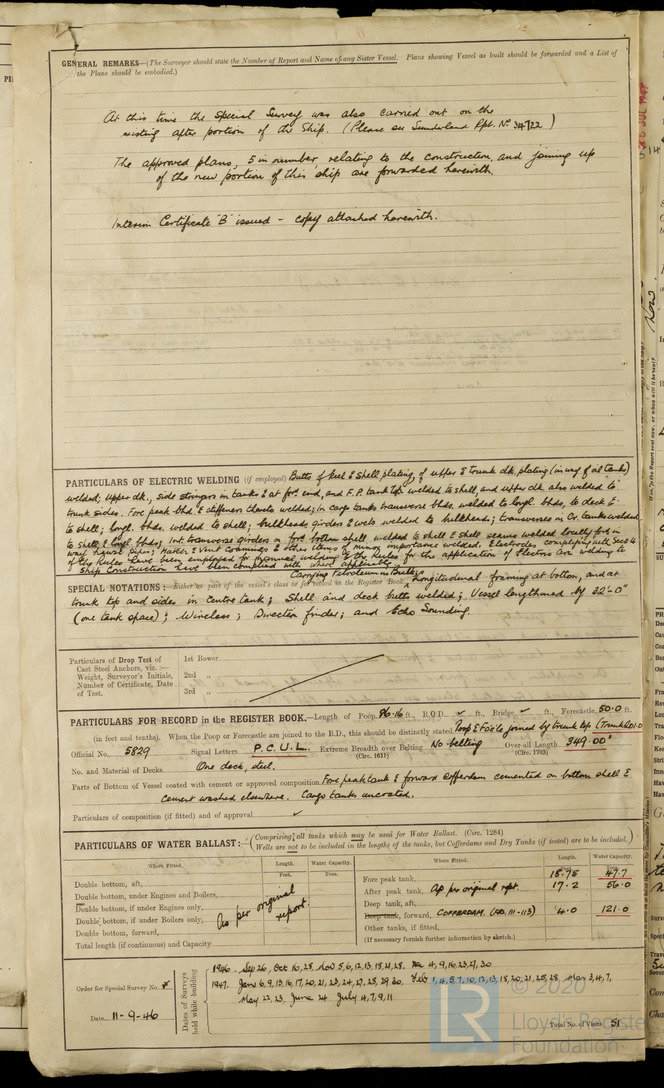 GENERAL REMARKS—(The Surveyor should state the Number of Report and Name of any Sister Vessel. Plans showing Vessel as built should be forwarded and a List of
the Plans should be embodied.)
At this time the Special Survey was also carried out on the
existing after portion of the Ship. (Please see Sunderland Rpt. No 34722)
The approved plans, 5 in number, relating to the construction and joining up
of the new portion of this ship are forwarded herewith.
Interim Certificate "B" issued - copy attached herewith.
PARTICULARS OF ELECTRIC WELDING (if employed) Butts of keel & shell plating, of upper & trunk dk. plating (in way of oil tanks)
welded; upper dk., side stringers in tanks & at for end, and F.P. tank top welded to shell, and upper dk. also welded to
trunk sides. Fore peak bhd & stiffeners thereto welded; in cargo tanks transverse bhds. welded to longl. bhds, to deck &
to shell; longl. bhds. welded to shell; bulkheads girders & webs welded to bulkheads; transverses in Cr. tanks welded
to shell & longl. bhds; int transverse girders in fore bottom shell welded to shell & shell seams welded locally for in
way; Hatch & Vent Coamings & other items of minor importance welded. Electrodes complying with Sect 4
of the Rules have been employed for manual welding & the Rules for the application of Electric Arc welding to
Ship Construction have been complied with where applicable.
Carrying Petroleum in bulk;
SPECIAL NOTATIONS:—Either as part of the vessel's class or for record in the Register Book, Longitudinal framing at bottom, and at
trunk top and sides in centre tank; Shell and deck butts welded; Vessel lengthened by 32'-0"
(one tank space); Wireless; Direction finder; and Echo Sounding.
Particulars of Drop Test of
Cast Steel Anchors, viz.:—
Weight, Surveyor's Initials,
Number of Certificate, Date
of Test.
1st Bower
2nd „
3rd „
PARTICULARS FOR RECORD in the REGISTER BOOK.—Length of Poop 86.16 ft., R.Q.D. ✓ ft., Bridge ✓ ft., Forecastle 50.0 ft.
(in feet and tenths). When the Poop or Forecastle are joined to the B.D., this should be distinctly stated Poop & Fo'c'le joined by trunk top
Official No. 5829 Signal Letters P.C.U.L. Extreme Breadth over Belting No belting Over-all Length 349.00'
(Circ. 1611) (Circ. 1703)
No. and Material of Decks One deck, steel.
Parts of Bottom of Vessel coated with cement or approved composition Fore peak tank & forward cofferdam cemented on bottom shell &
cement washed elsewhere. Cargo tanks uncoated.
Particulars of composition (if fitted) and of approval ✓
PARTICULARS OF WATER BALLAST:—(Comprising all tanks which may be used for Water Ballast. (Circ. 1284)
Wells are not to be included in the lengths of the tanks, but Cofferdams and Dry Tanks (if tested) are to be included.)
Where Fitted. Length. Water Capacity. Where Fitted. Length. Water Capacity.
Feet. Tons.
Double bottom, aft,
Double bottom, under Engines and Boilers,
Double bottom, if under Engines only,
Double bottom, if under Boilers only,
Double bottom, forward,
Total length (if continuous) and Capacity
As per original
report.
Fore peak tank, 18.75 49.7
After peak tank, As per original rept. 17.2 56.0
Deep tank, aft,
Deep tank, forward, COFFERDAM. (FRS. 111-113) 4.0 121.0
Other tanks, if fitted,
(If necessary furnish further information by sketch.)
Order for Special Survey No.
Date 11-9-46
Dates of Surveys
held while building
1946. Sep 26, Oct 16, 25, Nov 5, 6, 12, 13, 18, 21, 28. Dec 4, 9, 16, 23, 27, 30
1947. Jan 6, 9, 13, 16, 17, 20, 21, 23, 24, 27, 28, 29, 30. Feb 1, 4, 5, 7, 10, 12, 13, 18, 20, 21, 25, 28 Mar 3, 4, 7,
May 22, 23, June 24 July 4, 7, 9, 11
Total No. of Visits 51
LR
© 2020
Lloyd's Register
Foundation